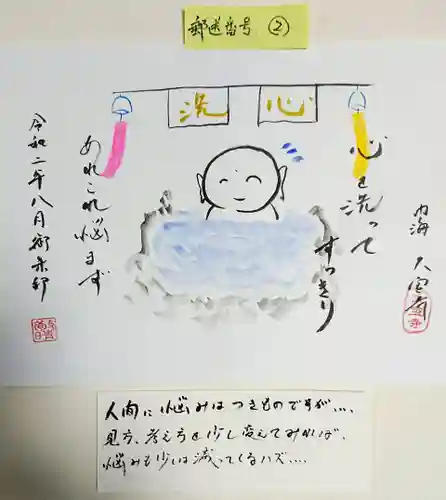 郵送番号 ②
洗心
心を洗って
すっきり
あれこれ悩まず
令和二年八月御朱印
内海 大宝寺
人間に悩みはつきものですが....
見方、考え方を少し変えてみれば、
悩みも少しは減ってくるハズ....